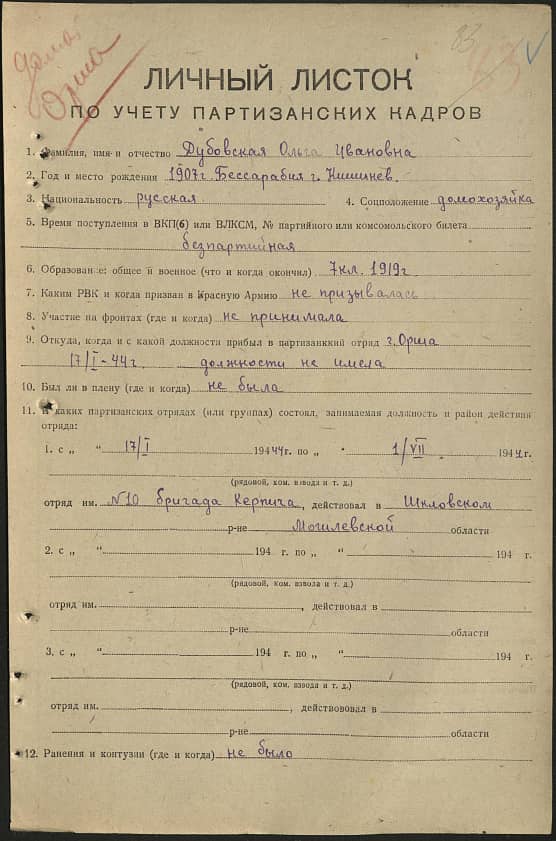 83
43
дома
Орша
ЛИЧНЫЙ ЛИСТОК
ПО УЧЕТУ ПАРТИЗАНСКИХ КАДРОВ
1. Фамилия, имя и отчество Дубовская Ольга Ивановна
2. Год и место рождения 1907г. Бессарабия г. Кишинев.
3. Национальность русская 4. Соцположение домохозяйка
5. Время поступления в ВКП(б) или ВЛКСМ, № партийного или комсомольского билета
безпартийная
6. Образование: общее и военное (что и когда окончил) 7кл. 1919г
7. Каким РВК и когда призван в Красную Армию не призывалась
8. Участие на фронтах (где и когда) не принимала
9. Откуда, когда и с какой должности прибыл в партизанкий отряд г. Орша
17/I-44г. должности не имела
10. Был ли в плену (где и когда) не была
11. В каких партизанских отрядах (или группах) состоял, занимаемая должность и район действия
отряда:
1. с „ “ 17/I 194 44г. по „ “ 1/VII 194 4г.
(рядовой, ком. взвода и т. д.)
отряд им. №10 бригада Керпича, действовал в Шкловском
р-не Могилевской области
2. с „ “ 194 г. по „ “ 194 г.
(рядовой, ком. взвода и т. д.)
отряд им. , действовал в
р-не области
3. с „ “ 194 г. по „ “ 194 г.
(рядовой, ком. взвода и т. д.)
отряд им. , действововал в
р-не области
12. Ранения и контузии (где и когда) не было